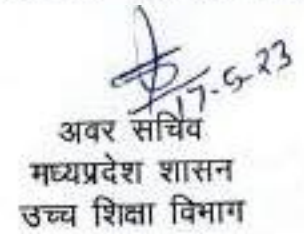 17-5-23
अवर सचिव
मध्यप्रदेश शासन
उच्च शिक्षा विभाग